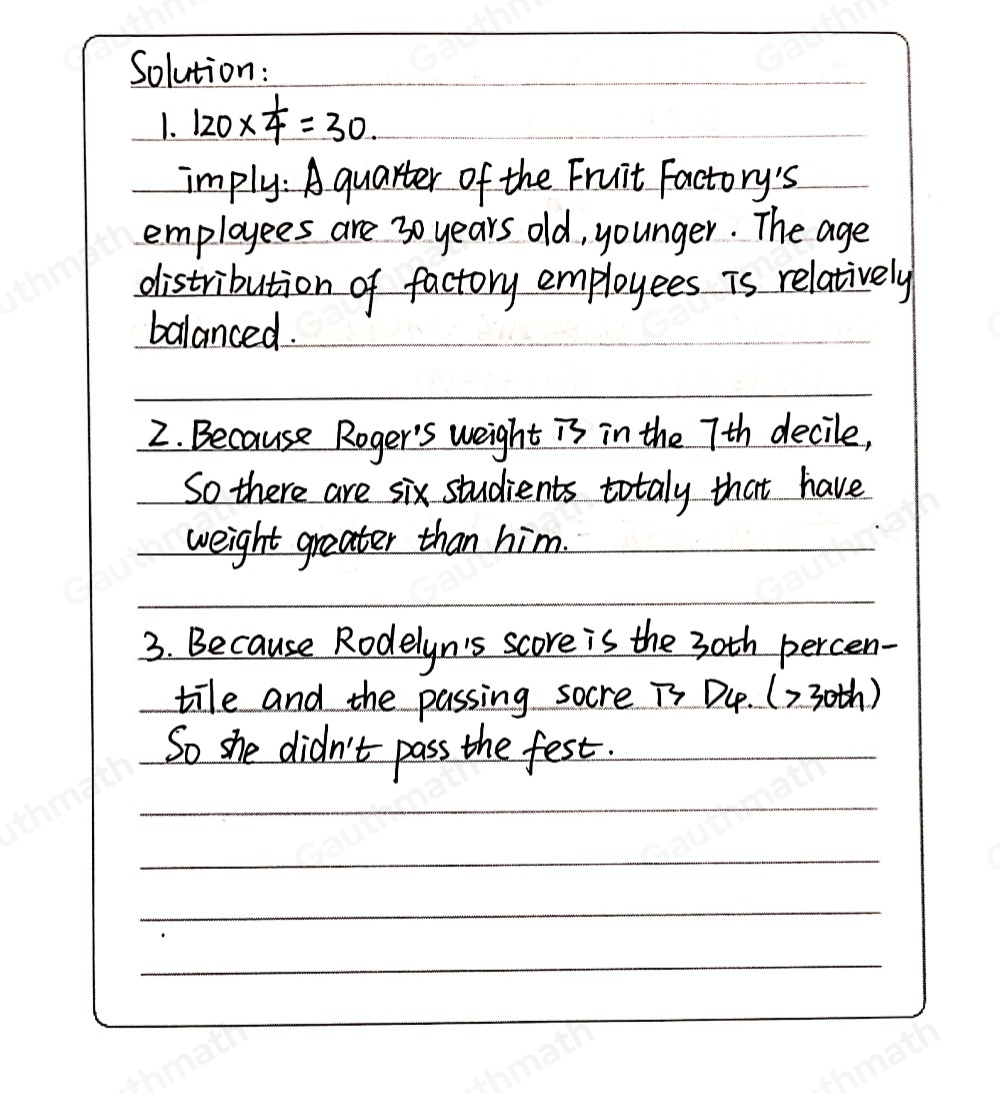 Solution:
1. 120 × 1/4 = 30.
imply: A quarter of the Fruit Factory's
employees are 30 years old, younger. The age
distribution of factory employees is relatively
balanced.
2. Because Roger's weight is in the 7th decile,
So there are six studients totaly that have
weight greater than him.
3. Because Rodelyn's score is the 30th percen-
tile and the passing socre is D4. (>30th)
So she didn't pass the fest.
Gauthmath